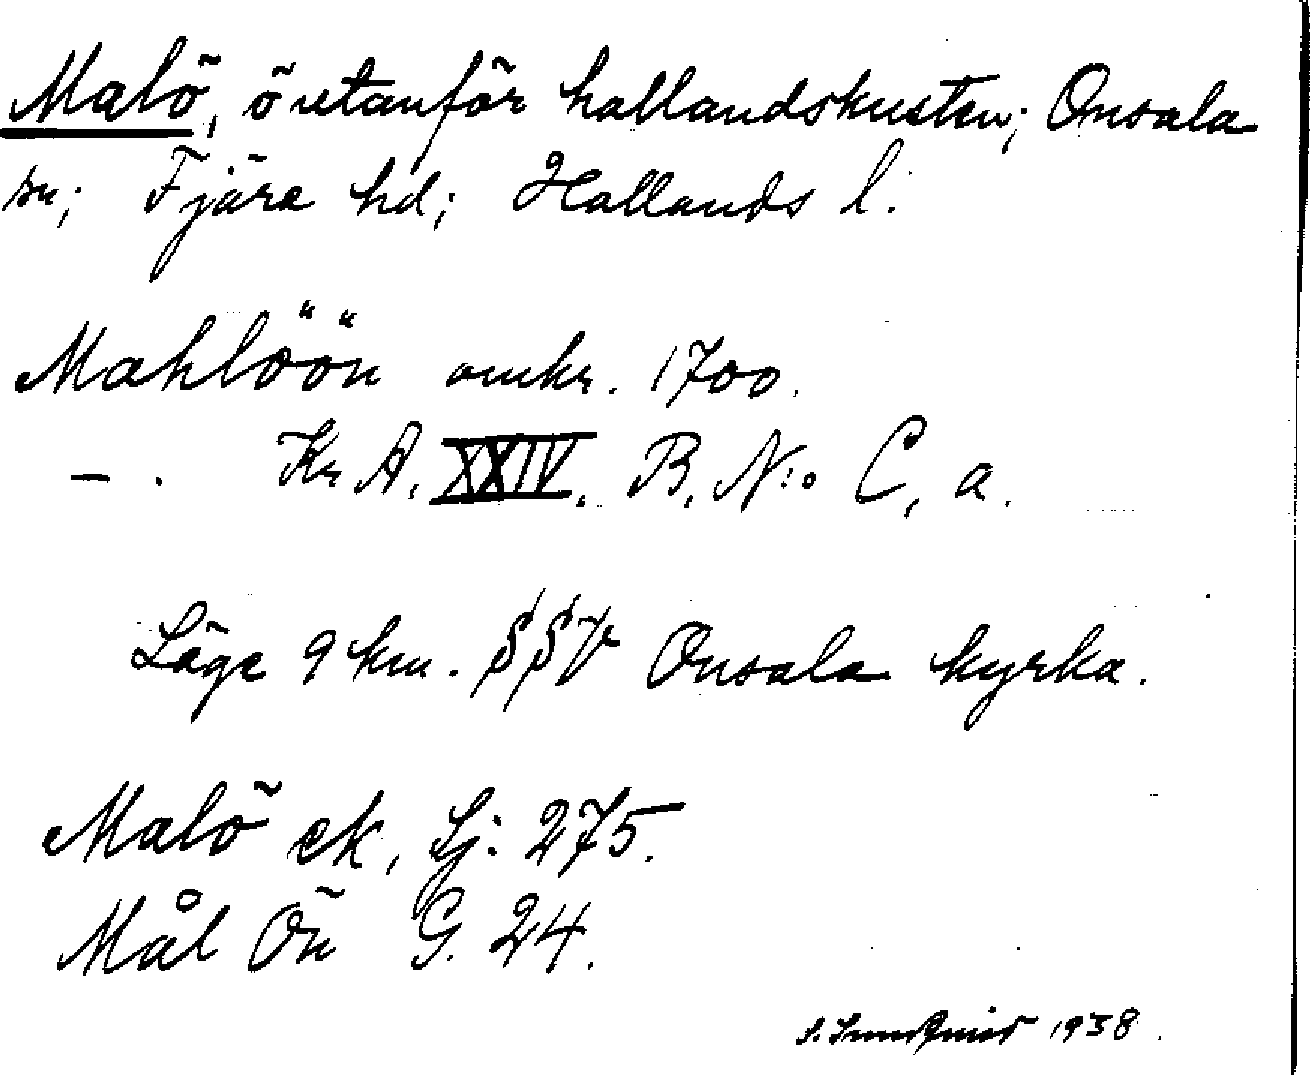 Malö, ö utanför hallandskusten; Onsala
sn; Fjäre hd; Hallands l.
Mahlöön omkr. 1700.
— . Kr A. XXIV. B. N:o C, a.
Läge 9 km. SSV Onsala kyrka.
Malö ek, Sj: 275.
Mål Ön G. 24.
S. Lundqvist 1938.